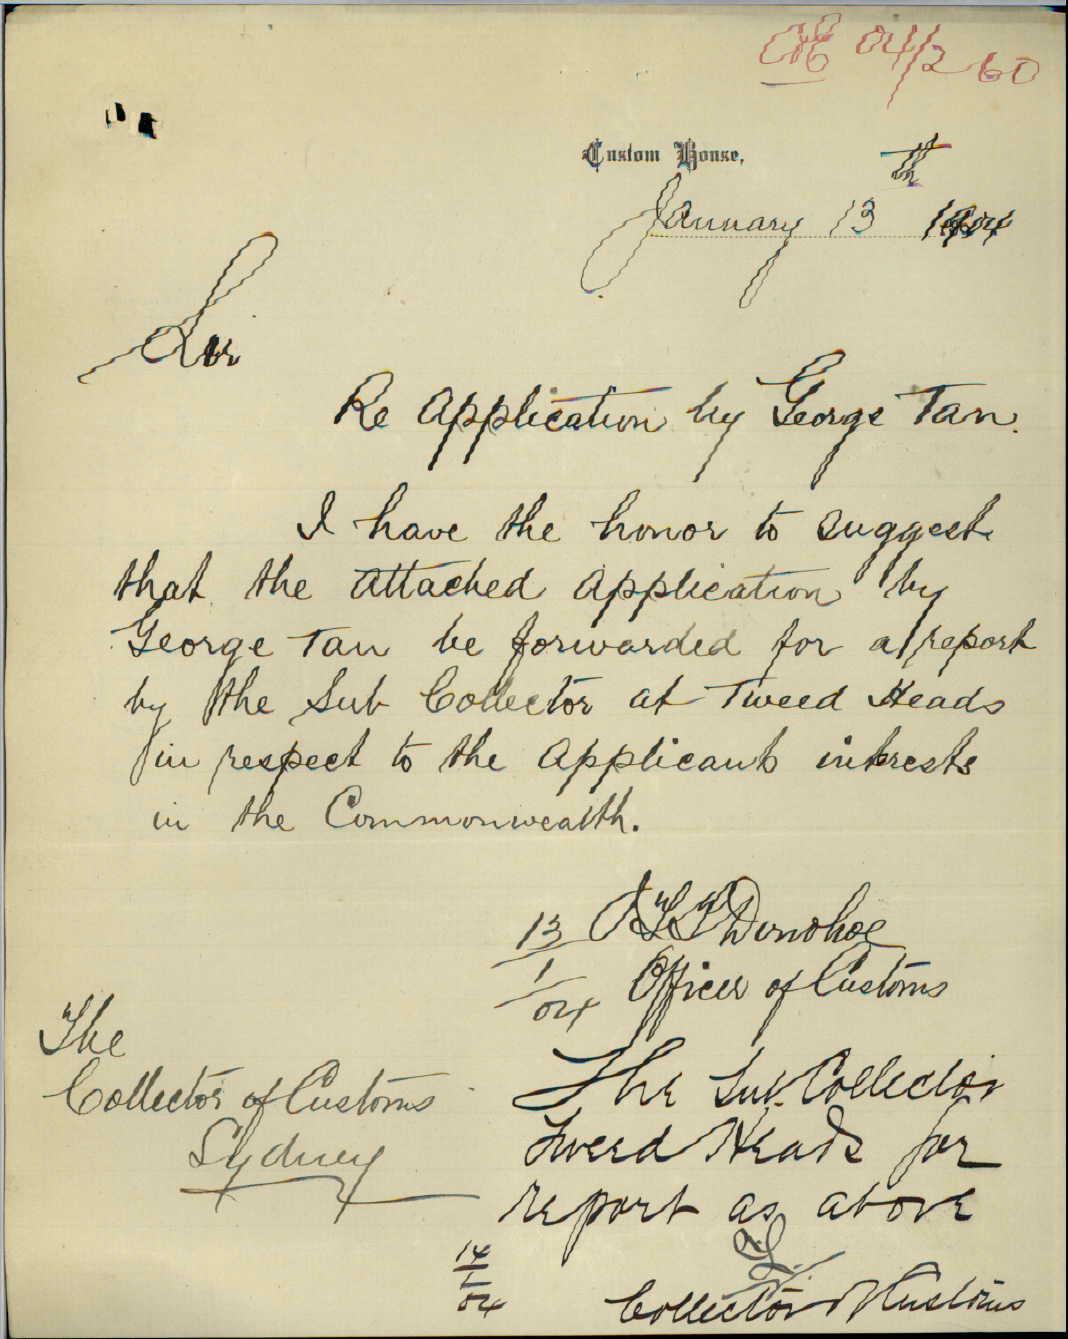 04/260
Custom House,
January 13th 1904
Sir
Re Application by George Tan.
I have the honor to suggest
that the attached application by
George Tan be forwarded for a report
by the Sub Collector at Tweed Heads
in respect to the applicants interests
in the Commonwealth.
13/1/04 Donohoe
Officer of Customs
The
Collector of Customs
Sydney
The Sub. Collector
Tweed Heads for
report as above
14/1/04
Collector of Customs